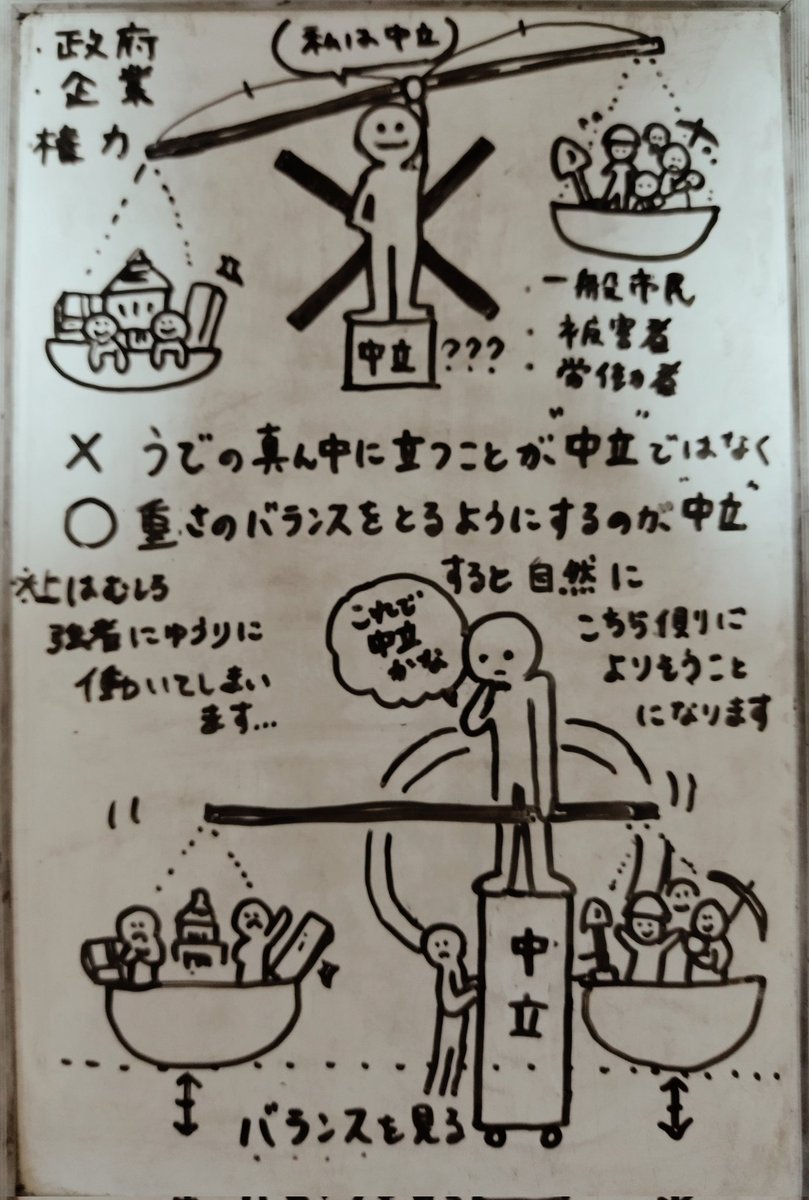 ・政府
・企業
権力
私は中立
中立
???
・一般市民
・被害者
・労働者
× うでの真ん中に立つことが"中立"ではなく
○ 重さのバランスをとるようにするのが"中立"
※上はむしろ
強者にゆうりに
働いてしまい
ます…
すると自然に
こちら側りに
よりそうこと
になります
これで
中立
かな
中立
バランスを見る